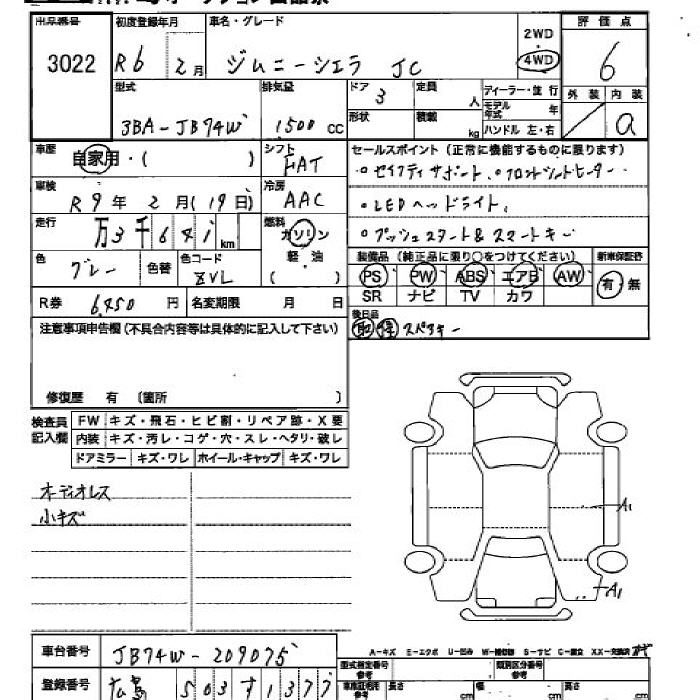 出品番号 初度登録年月 車名・グレード 評価点
3022 R6 2月 ジムニーシエラ JC 2WD 4WD 6
型式 排気量 ドア 3 定員 人 ディーラー・並行 外装 内装
3BA-JB74W 1500cc 形状 積載 kg モデル年式 年 ハンドル 左・右 a
車歴 自家用・( ) シフト FAT セールスポイント (正常に機能するものに限ります)
。セイフティサポート、。フロントシートヒーター
車検 R9年2月(19日) 冷房 AAC 。LEDヘッドライト、
走行 万3千641km 燃料 ガソリン 軽・油 ( ) 。プッシュスタート&スマートキー
色 グレー 色替 色コード ZVL 装備品(純正品に限り○をつけてください) 新車保証書
PS PW ABS エアB AW 有・無
SR ナビ TV カワ
R券 6,450円 名変期限 月 日 後日品
取 保 スペアキー
注意事項申告欄(不具合内容等は具体的に記入して下さい)
修復歴 有 (箇所 )
検査員記入欄 FW キズ・飛石・ヒビ割・リペア跡・X要
内装 キズ・汚レ・コゲ・穴・スレ・ヘタリ・破レ
ドアミラー キズ・ワレ ホイール・キャップ キズ・ワレ
オーディオレス
小キズ
A1
A1
A-キズ E-エクボ U-凹み W-補修跡 S-サビ C-腐食 XX-交換済
車台番号 JB74W-209075 型式指定番号 参考 類別区分番号 参考
登録番号 広島 503す1377 車庫証明用 参考 長さ cm 幅 cm 高さ cm